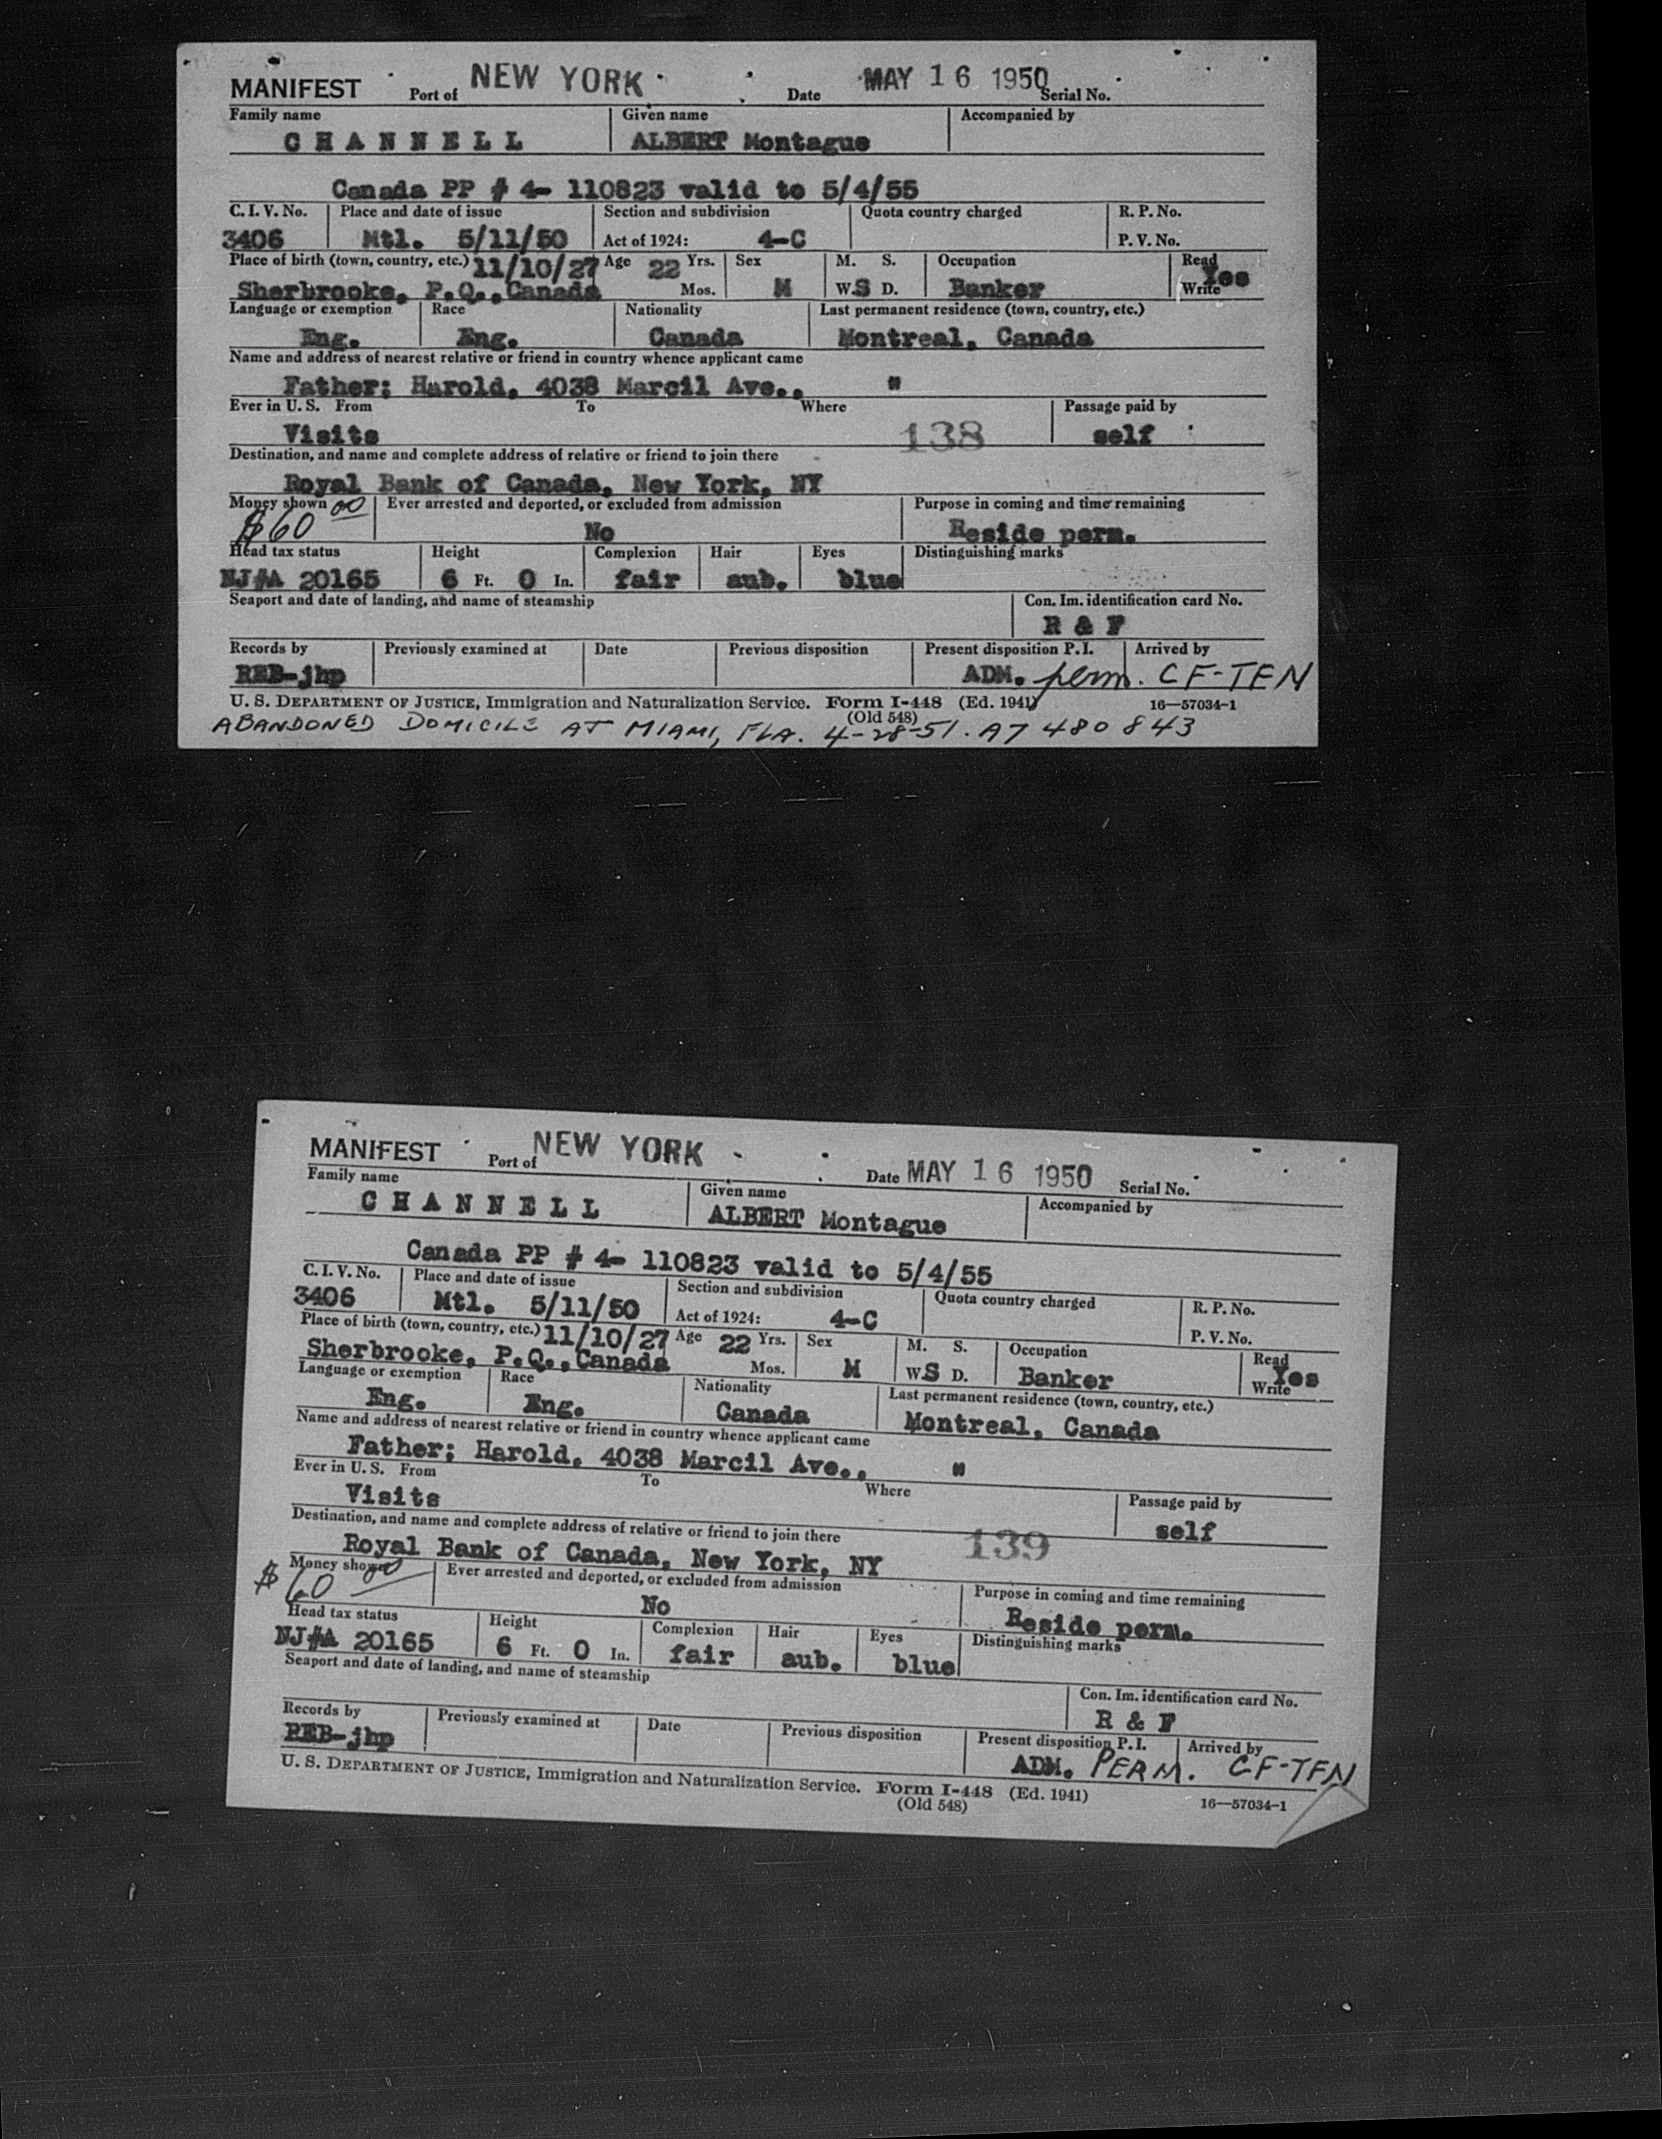 MANIFEST Port of NEW YORK Date MAY 16 1950 Serial No.
Family name Given name Accompanied by
CHANNELL ALBERT Montague
Canada PP # 4- 110823 valid to 5/4/55
C. I. V. No. Place and date of issue Section and subdivision Quota country charged R. P. No.
3406 Mtl. 5/11/50 Act of 1924: 4-C P. V. No.
Place of birth (town, country, etc.) 11/10/27 Age 22 Yrs. Sex M. S. Occupation Read
Sherbrooke, P.Q., Canada Mos. M W.S D. Banker Write Yes
Language or exemption Race Nationality Last permanent residence (town, country, etc.)
Eng. Eng. Canada Montreal, Canada
Name and address of nearest relative or friend in country whence applicant came
Father; Harold, 4038 Marcil Ave., "
Ever in U. S. From To Where Passage paid by
Visits 138 self
Destination, and name and complete address of relative or friend to join there
Royal Bank of Canada, New York, NY
Money shown 00 Ever arrested and deported, or excluded from admission Purpose in coming and time remaining
$60 No Reside perm.
Head tax status Height Complexion Hair Eyes Distinguishing marks
NJ#A 20165 6 Ft. 0 In. fair aub. blue
Seaport and date of landing, and name of steamship Con. Im. identification card No.
R & F
Records by Previously examined at Date Previous disposition Present disposition P. I. Arrived by
REB-jhp ADM. perm. CF-TFN
U. S. DEPARTMENT OF JUSTICE, Immigration and Naturalization Service. Form I-448 (Ed. 1941) 16—57034-1
(Old 548)
ABANDONED DOMICILE AT MIAMI, FLA. 4-28-51. A7 480 843
MANIFEST Port of NEW YORK Date MAY 16 1950 Serial No.
Family name Given name Accompanied by
CHANNELL ALBERT Montague
Canada PP # 4- 110823 valid to 5/4/55
C. I. V. No. Place and date of issue Section and subdivision Quota country charged R. P. No.
3406 Mtl. 5/11/50 Act of 1924: 4-C P. V. No.
Place of birth (town, country, etc.) 11/10/27 Age 22 Yrs. Sex M. S. Occupation Read
Sherbrooke, P.Q., Canada Mos. M W.S D. Banker Write Yes
Language or exemption Race Nationality Last permanent residence (town, country, etc.)
Eng. Eng. Canada Montreal, Canada
Name and address of nearest relative or friend in country whence applicant came
Father; Harold, 4038 Marcil Ave., "
Ever in U. S. From To Where Passage paid by
Visits self
Destination, and name and complete address of relative or friend to join there 139
Royal Bank of Canada, New York, NY
Money shown 00 Ever arrested and deported, or excluded from admission Purpose in coming and time remaining
$60 No Reside perm.
Head tax status Height Complexion Hair Eyes Distinguishing marks
NJ#A 20165 6 Ft. 0 In. fair aub. blue
Seaport and date of landing, and name of steamship Con. Im. identification card No.
R & F
Records by Previously examined at Date Previous disposition Present disposition P. I. Arrived by
REB-jhp ADM. PERM. CF-TFN
U. S. DEPARTMENT OF JUSTICE, Immigration and Naturalization Service. Form I-448 (Ed. 1941) 16—57034-1
(Old 548)